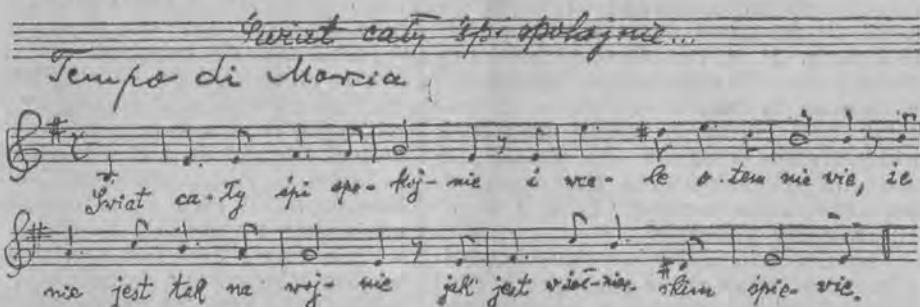 Świat cały śpi spokojnie...
Tempo di Marcia
Świat ca-ły śpi spo-koj-nie i wca-le o tem nie wie, że
nie jest tak na woj-nie jak jest w żoł-nier-skim śpie-wie.